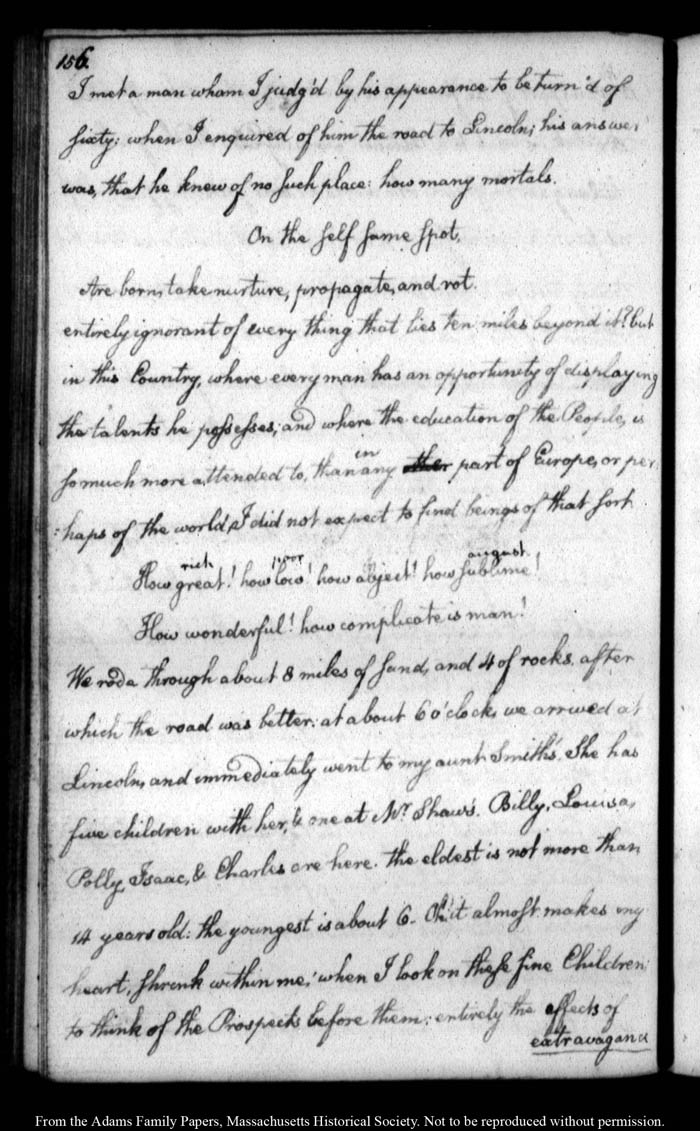 156.
I met a man whom I judg'd by his appearance to be turn'd of
sixty: when I enquired of him the road to Lincoln; his answer,
was, that he knew of no such place: how many mortals.
On the self same spot,
Are born, take nurture, propagate, and rot.
entirely ignorant of every thing that lies ten miles beyond it? but
in this Country, where every man has an opportunity of displaying
the talents he possesses, and where the education of the People, is
in
so much more attended to, than any ther part of Europe, or per,
:haps of the world, I did not expect to find beings of that sort.
rich poor august
How great! how low! how abject! how sublime!
How wonderful! how complicate is man!
We rode through about 8 miles of sand, and 4 of rocks. after
which the road was better. at about 6 o'clock, we arrived at
Lincoln, and immediately went to my aunt Smith's. She has
five children with her, & one at Mr. Shaw's. Billy, Louisa,
Polly, Isaac, & Charles are here. the eldest is not more than
14 years old: the youngest is about 6. Oh! it almost makes my
heart, shrink within me; when I look on these fine Children;
to think of the Prospects before them: entirely the effects of
extravagance
From the Adams Family Papers, Massachusetts Historical Society. Not to be reproduced without permission.